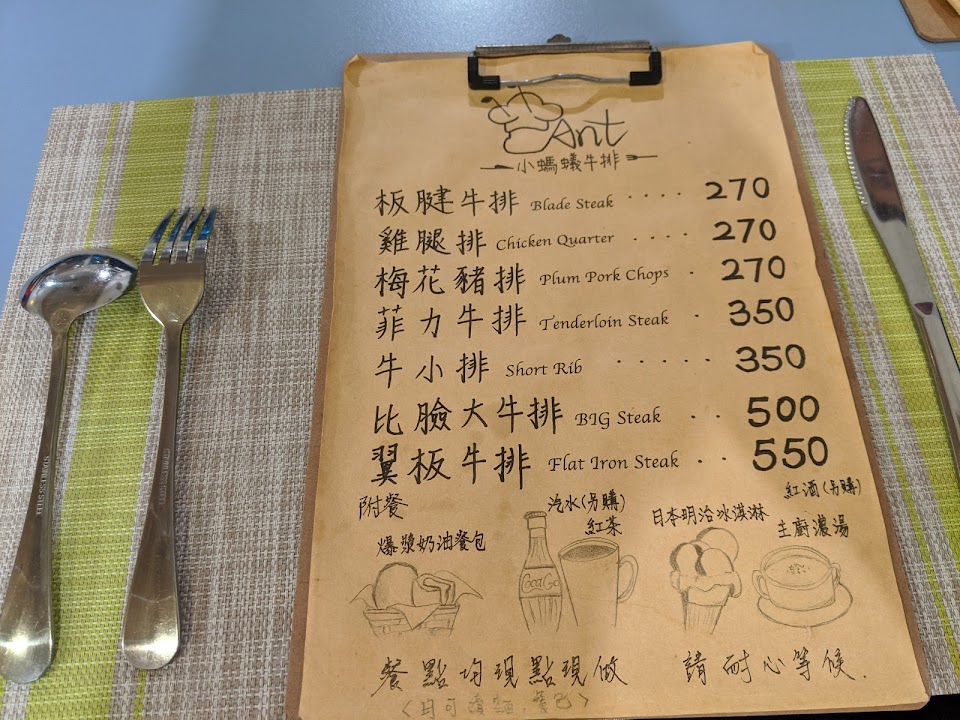 Ant
小螞蟻牛排
板腱牛排 Blade Steak ···· 270
雞腿排 Chicken Quarter ···· 270
梅花豬排 Plum Pork Chops · 270
菲力牛排 Tenderloin Steak · 350
牛小排 Short Rib ····· 350
比臉大牛排 BIG Steak ·· 500
翼板牛排 Flat Iron Steak ·· 550
附餐
爆漿奶油餐包
汽水(另購)
紅茶
日本明治冰淇淋
紅酒(另購)
主廚濃湯
CocaCo
餐點均現點現做 請耐心等候.
STAINLESS STEEL